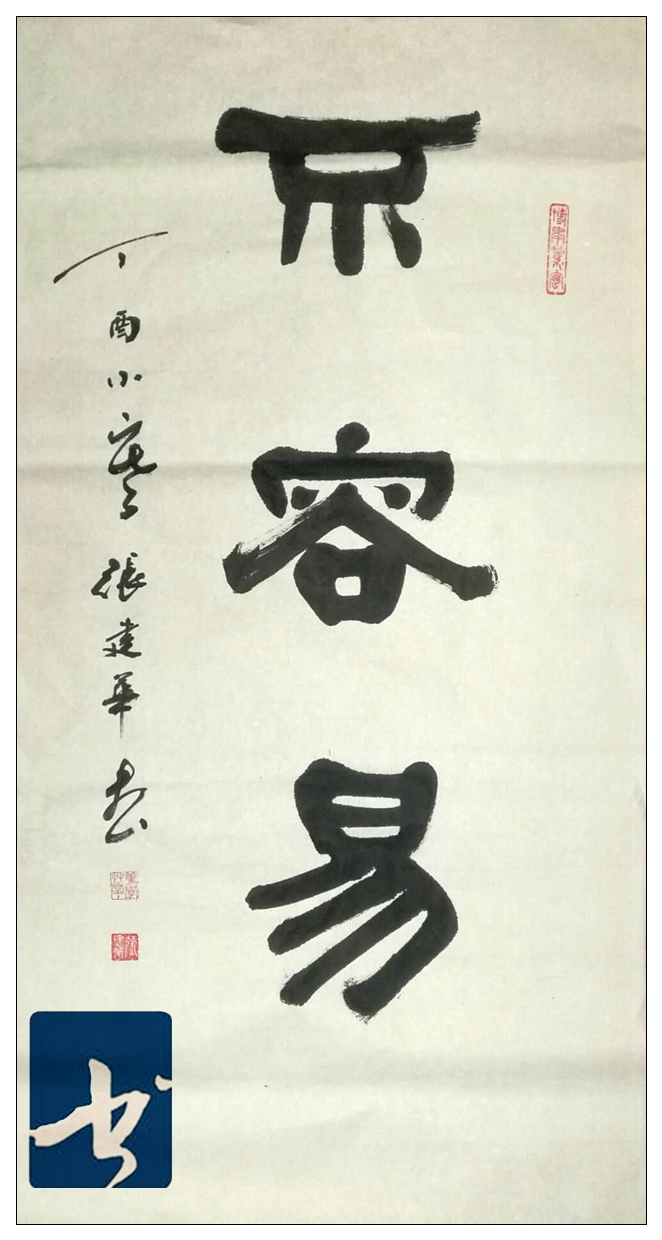 不容易
丁酉小寒張建華书
书